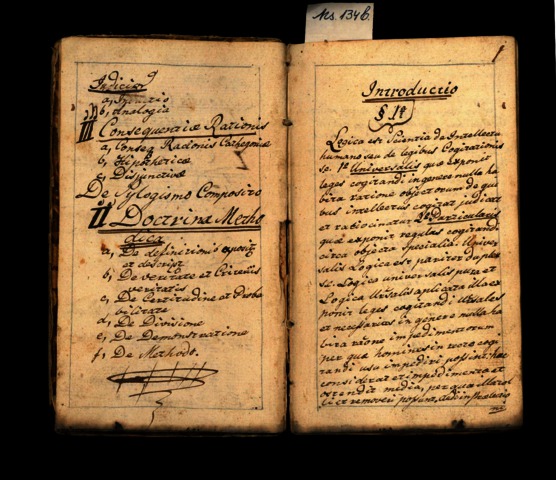 Ms. 1346.
Judicior
b, Analogia
III Consequentiæ Rationis
a, Conseq Rationis Cathegoricæ
b, Hipotheticæ
c, Disjunctivæ
De Sylogismo Composito
II Doctrina Metho
dica
a, De definitionis exposit
et descript
b, De veritate et Criteriis
veritatis
c, De Certitudine et Proba
bilitate
d, De Divisione
e, De Demonstratione
f, De Methodo.
1
Introductio
§ 1º
Logica est Scientia de Intellectu
humano seu de legibus Cogitationis
se. 1º Universalis quæ exponit
leges cogitandi in genere nulla ha
bita ratione objectorum de qui
bus intellectus cogitat judicat
et ratiocinatur 2º Particularis
quæ exponit regulas cogitandi
circa objecta Specialia. Univer
salis Logica est pariter duplex
se. Logica universalis pura et
Logica Ulsalis aplicata illa ex
ponit leges cogitandi Ulsales
et necessarias in genere nulla ha
bita ratione impedimentorum
per quæ homines in recto cogi
tandi usu impediri possint, hæc
considerat et impedimenta et
ostendit media, per quæ
et removeri possunt,